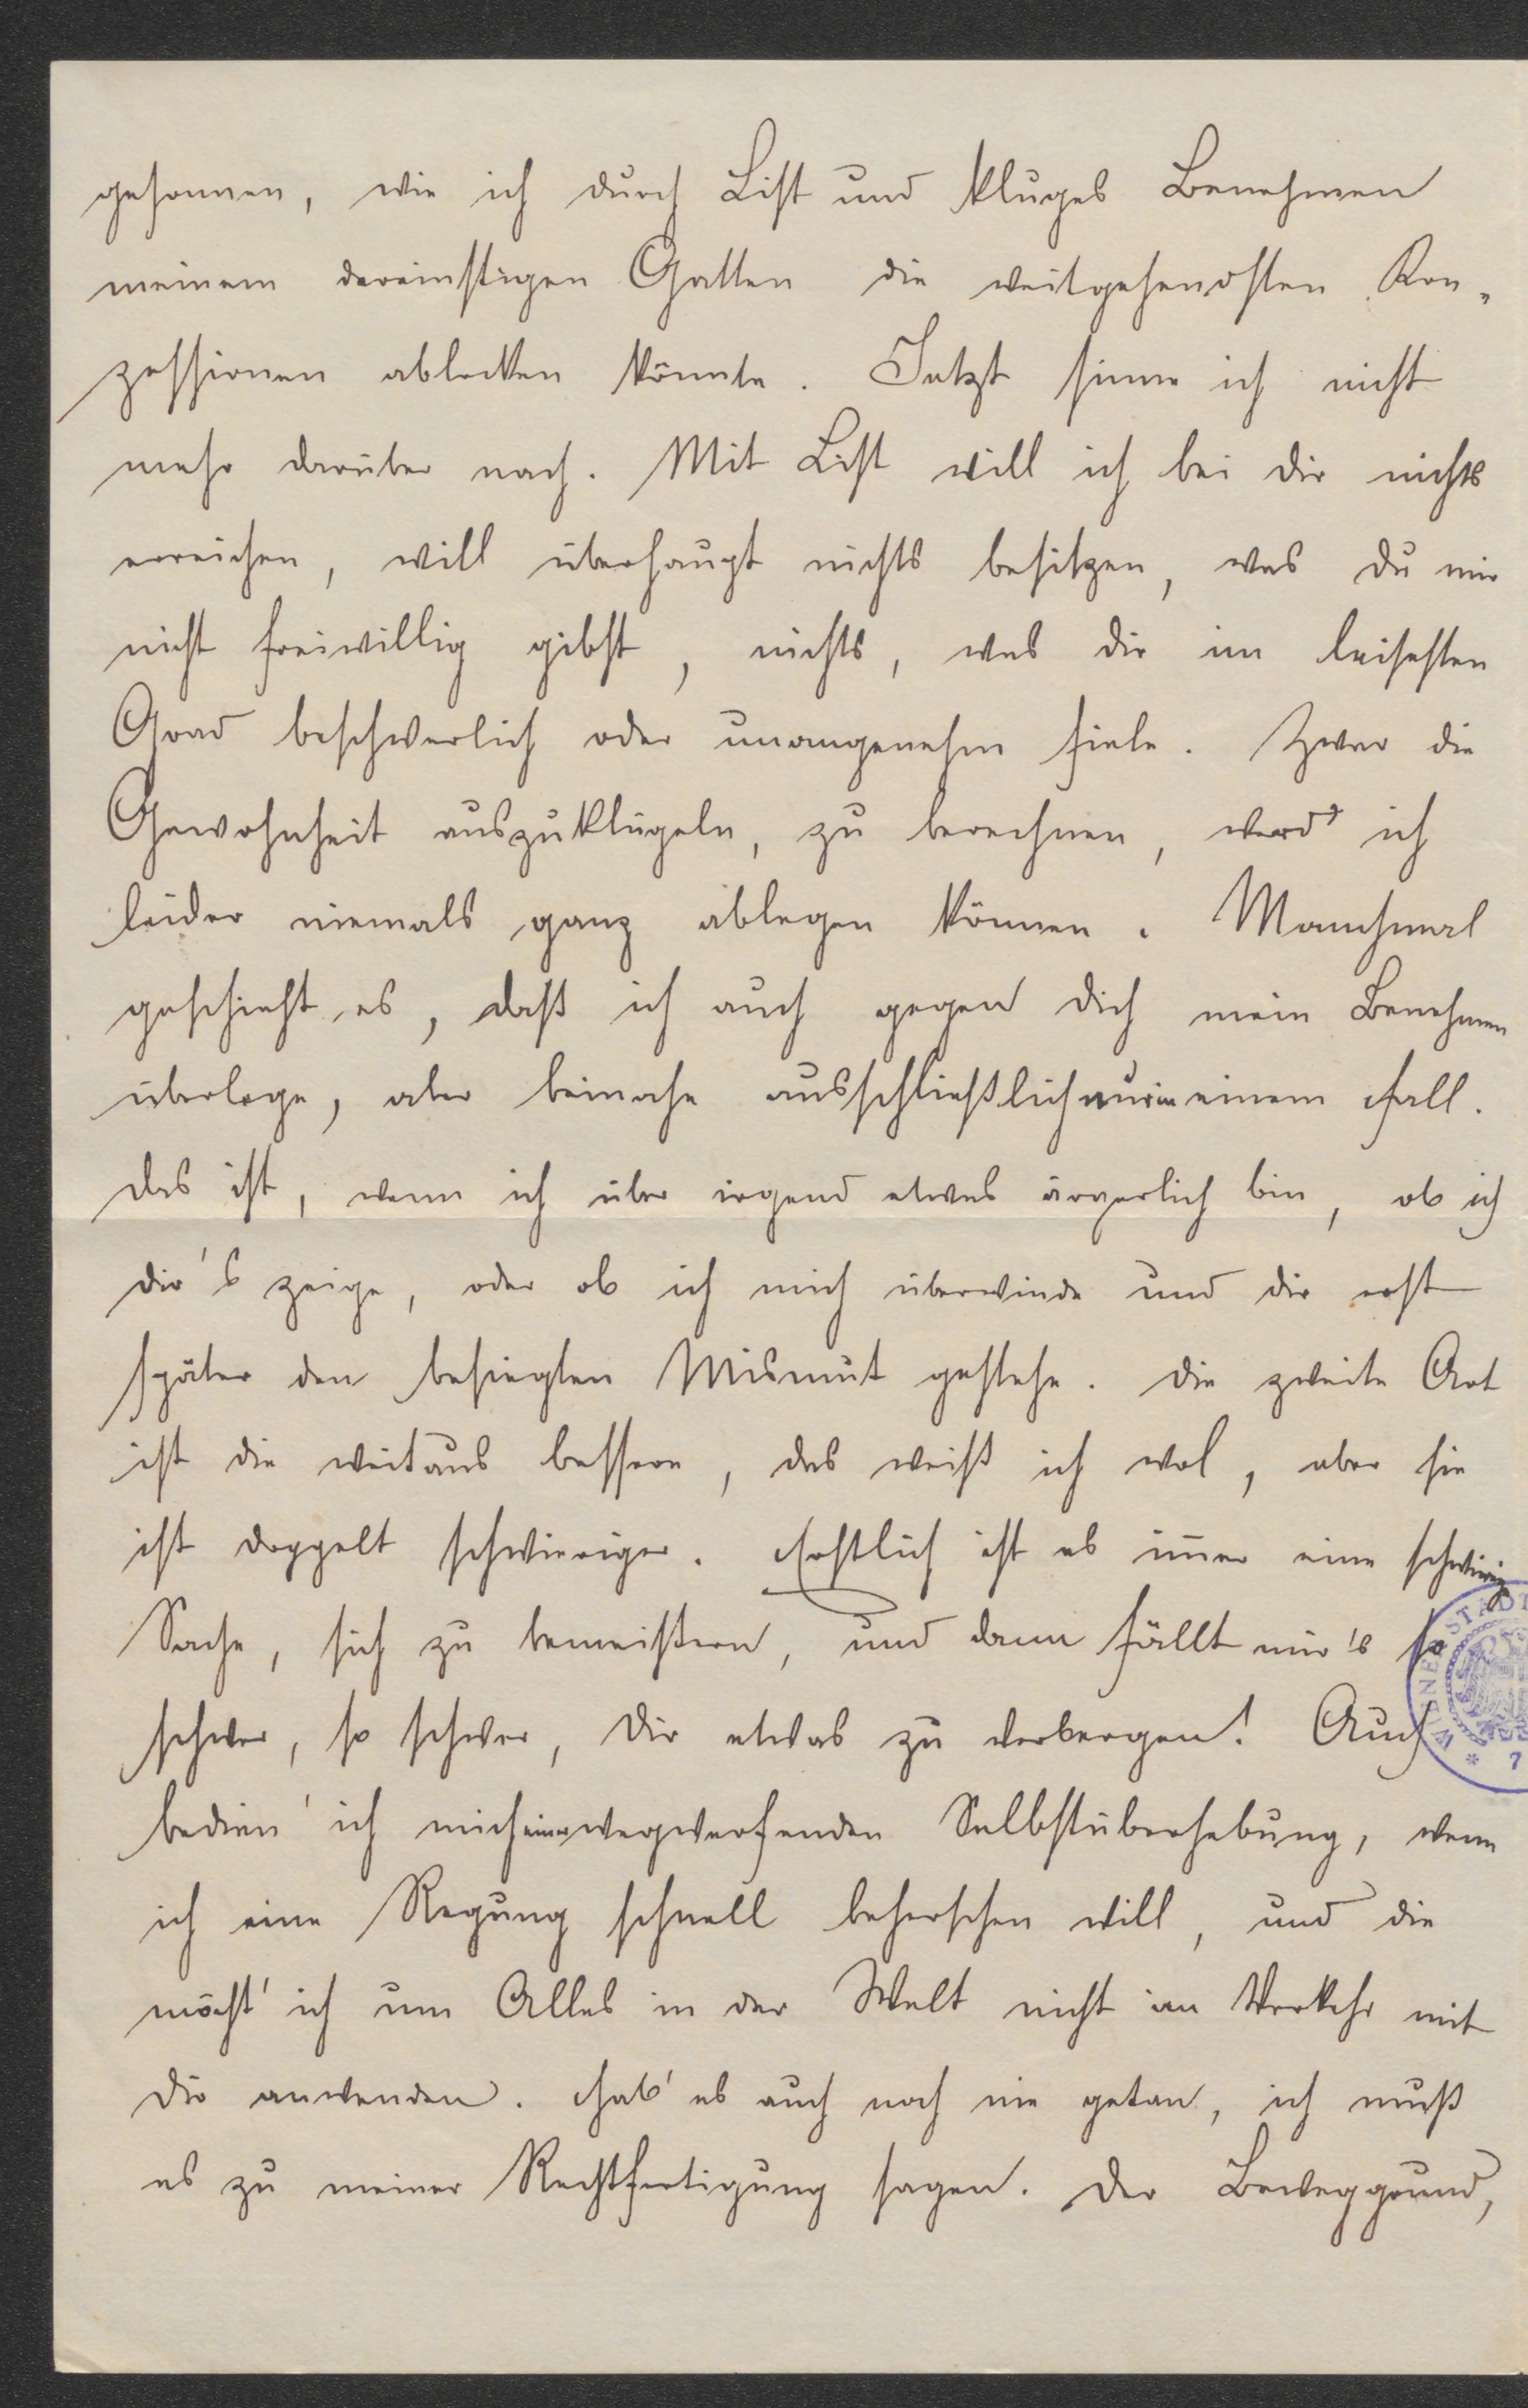 gesonnen, wie ich durch List und kluges Benehmen
meinem dereinstigen Gatten die weitgehendsten Kon-
zessionen ablocken könnte. Jetzt sinne ich nicht
mehr darüber nach. Mit List will ich bei dir nichts
erreichen, will überhaupt nichts besitzen, was du mir
nicht freiwillig gibst, nichts, was dir im leisesten
Grad beschwerlich oder unangenehm fiele. Zwar die
Gewohnheit auszuklügeln, zu berechnen, werd' ich
leider niemals ganz ablegen können. Manchmal
geschieht es, daß ich auch gegen dich mein Benehmen
überlege, aber beinahe ausschließlich nur in einem Fall.
Das ist, wenn ich über irgend etwas ärgerlich bin, ob ich
dir's zeige, oder ob ich mich überwinde und dir erst
später den besiegten Mismut gestehe. Die zweite Art
ist die weitaus bessere, das weiß ich wol, aber sie
ist doppelt schwieriger. Erstlich ist es im̅er eine schwierige
Sache, sich zu bemeistern, und dann fällt mir's so
schwer, so schwer, dir etwas zu verbergen! Auch
bedien' ich mich einer wegwerfenden Selbstüberhebung, wenn
ich eine Regung schnell beherschen will, und die
möcht' ich um Alles in der Welt nicht im Verkehr mit
dir anwenden. Hab' es auch noch nie getan, ich muß
es zu meiner Rechtfertigung sagen. Der Beweggrund,
WIENER STADT
* 7